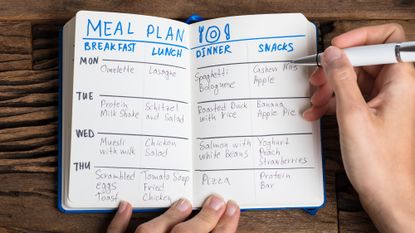 MEAL PLAN
BREAKFAST LUNCH DINNER SNACKS
MON
Omelette Lasagne Spaghetti Bolognese Cashew Nuts Apple
TUE
Protein Milk Shake Schitzel and Salad Roasted Duck with rice Banana Apple Pie
WED
Muesli with milk Chicken Salad Salmon with white Beans Yoghurt Peach Strawberries
THU
Scrambled eggs Toast Tomato Soup Fried Chicken Pizza Protein Bar